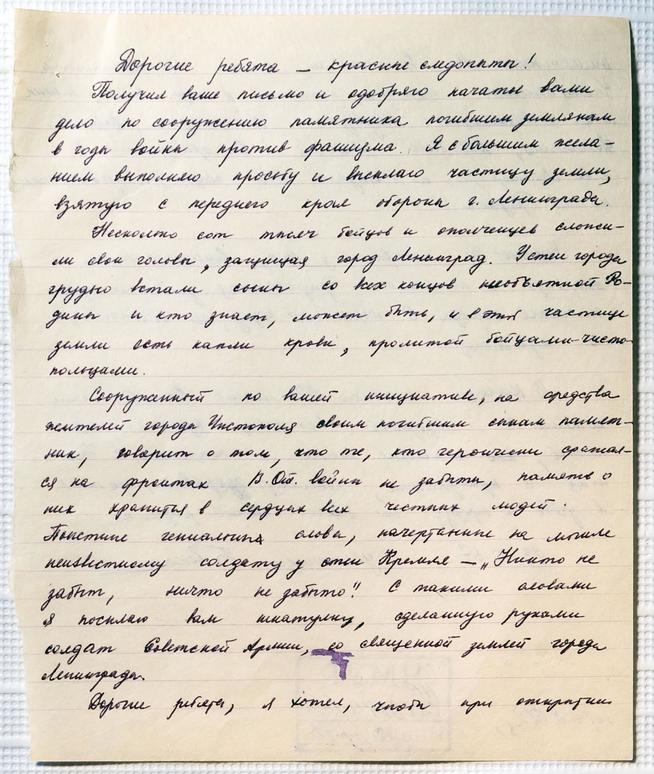 Дорогие ребята — красные следопыты!
Получил ваше письмо и одобряю начатое вами
дело по сооружению памятника погибшим землякам
в годы войны против фашизма. Я с большим жела-
нием выполняю просьбу и высылаю частицу земли,
взятую с переднего края обороны г. Ленинграда.
Несколько сот тысяч бойцов и ополченцев сложи-
ли свои головы, защищая город Ленинград. У стен города
грудью встали сыны со всех концов необъятной Ро-
дины и кто знает, может быть, и в этой частице
земли есть капли крови, пролитой бойцами-чисто-
польцами.
Сооруженный по вашей инициативе, на средства
жителей города Чистополя своим погибшим сынам памят-
ник, говорит о том, что те, кто героически сражал-
ся на фронтах В.От. войны не забыты, память о
них хранится в сердцах всех честных людей.
Поистине гениальны слова, начертанные на могиле
неизвестному солдату у стен Кремля — „Никто не
забыт, ничто не забыто". С такими словами
я посылаю вам шкатулку, сделанную руками
солдат Советской Армии, со священной землей города
Ленинграда.
Дорогие ребята, я хотел, чтобы при открытии